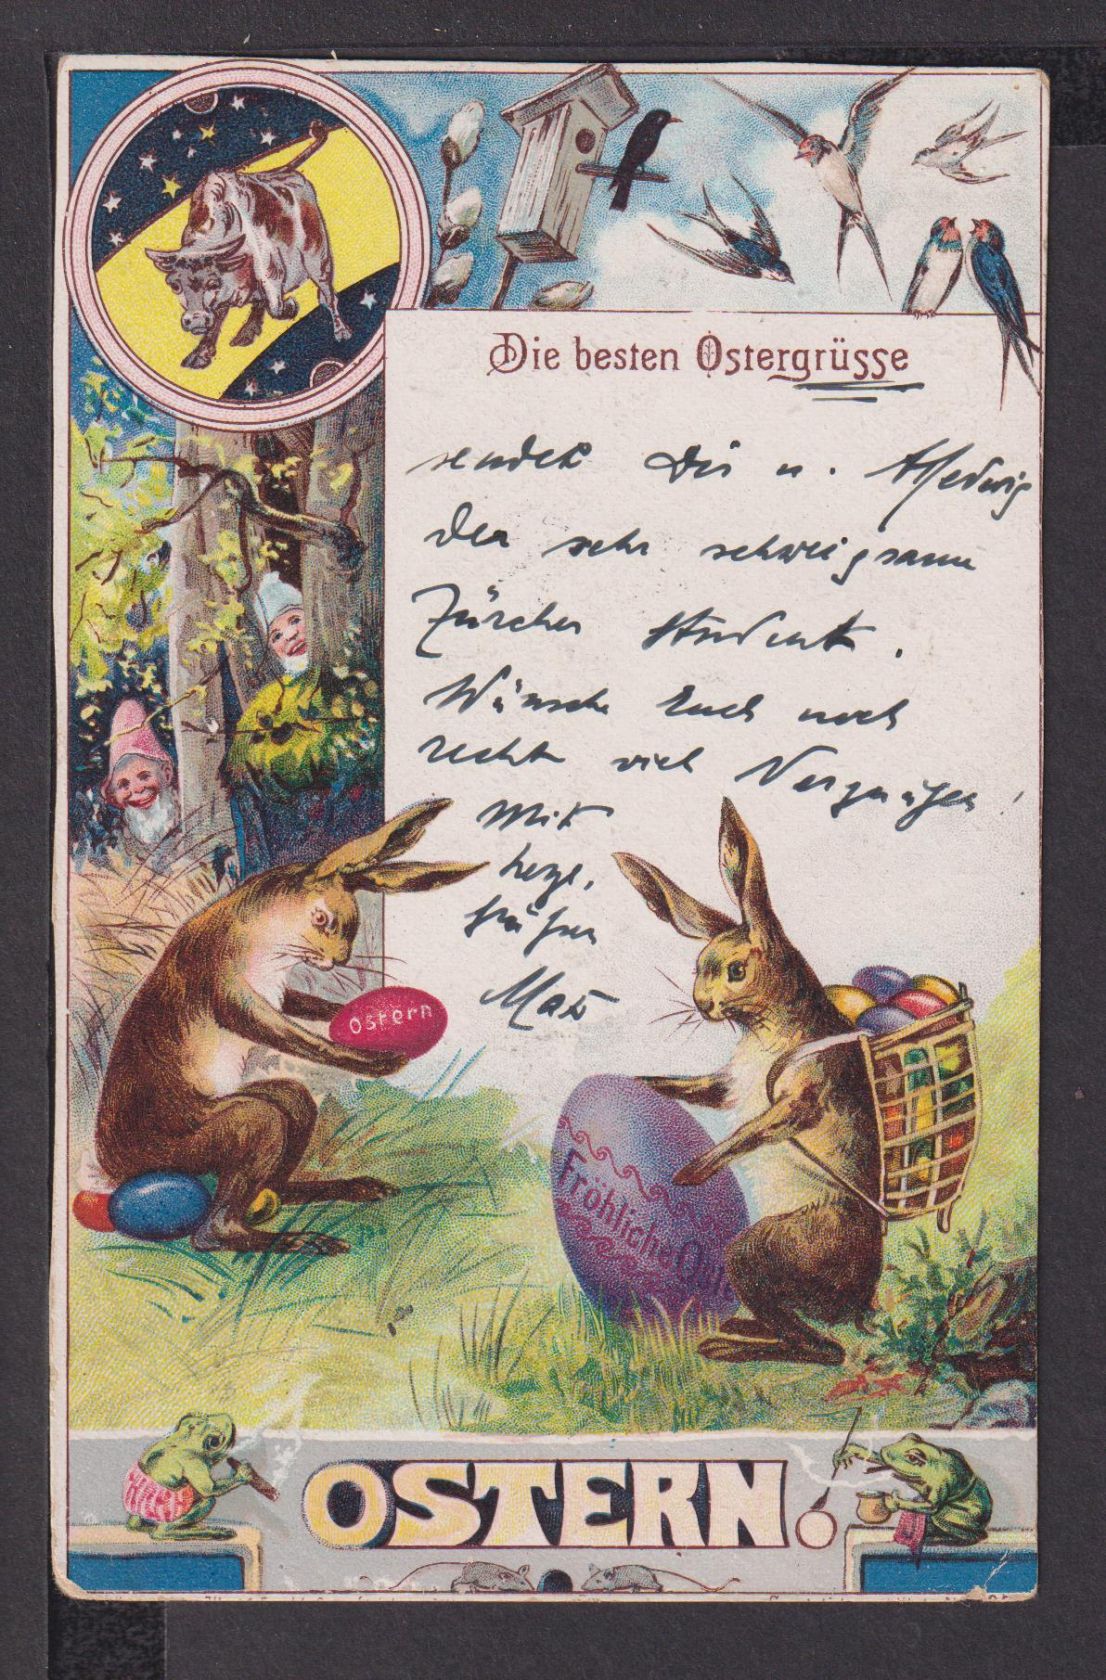 Die besten Ostergrüsse
sendet Dir u. Hedwig
der sehr schweigsame
Zürcher Student.
Wünsche Euch noch
recht viel Vergnügen,
Mit
herzl.
Grüßen
Max
Ostern
Fröhliche Oste
OSTERN.